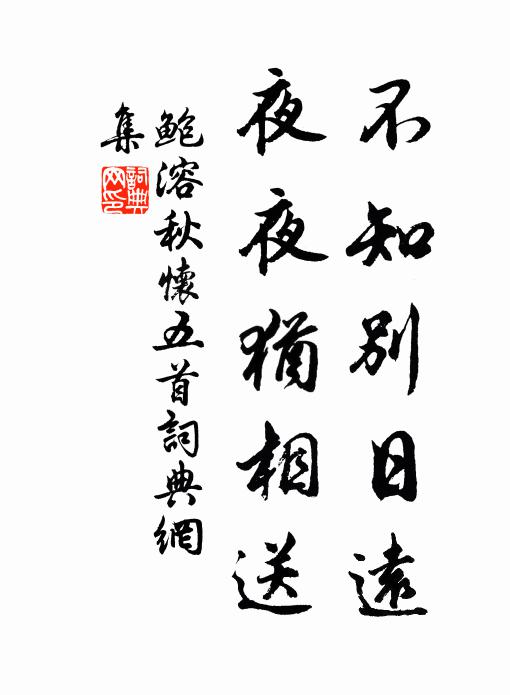 不知別日遠
夜夜猶相送
鮑溶秋懷五首詞典網
集
詞典網印